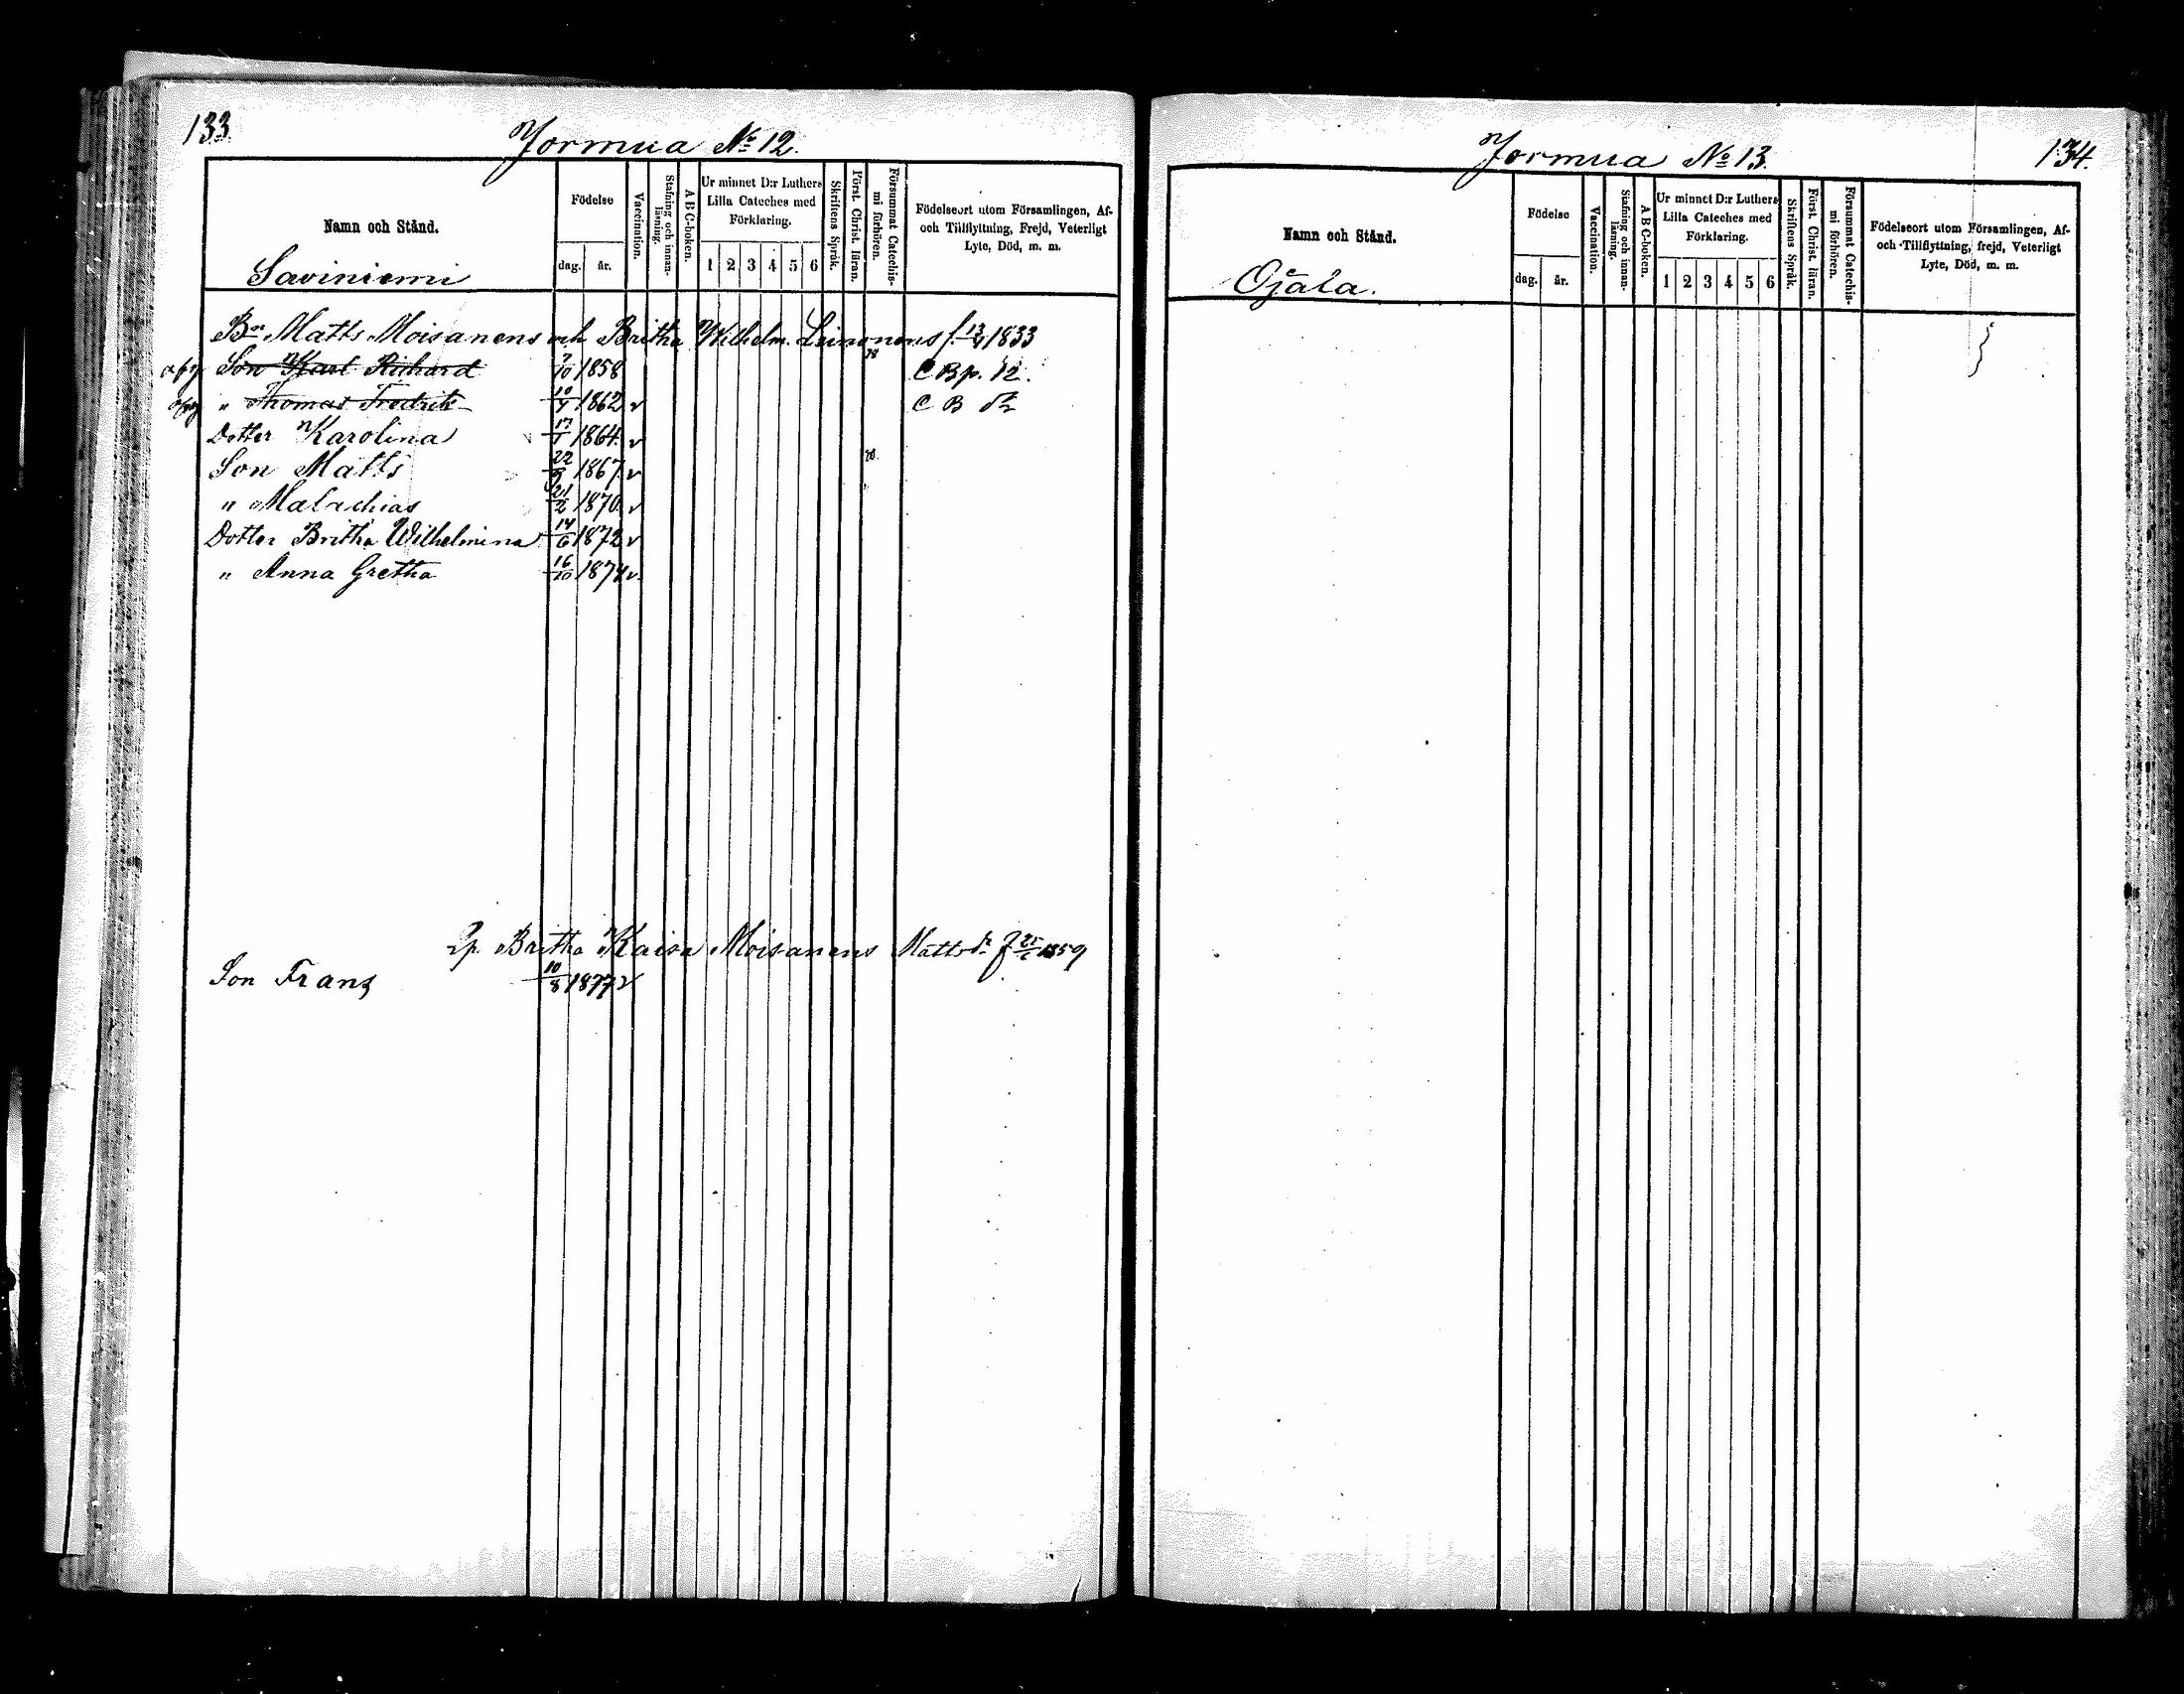 133
Jormua No 12.
Namn och Stånd.
Födelse
dag. år.
Vaccination.
Stafning och innan-läsning.
A B C-boken.
Ur minnet D:r Luthers Lilla Cateches med Förklaring.
1 2 3 4 5 6
Skriftens Språk.
Först. Christ. läran.
Försummat Catechis-mi förhören.
Födelseort utom Församlingen, Af-
och Tillflyttning, Frejd, Veterligt
Lyte, Död, m. m.
Saviniemi
Bn Matts Moisanens och Britha Wilhelm. Leinonens f. 1833
Son Karl Richard 7/10 1858 C B p. 12.
" Thomas Fredrik 1862 v C B
Dotter Karolina 17/1 1864. v
Son Matts 22/9 1867. v
" Malachias 21/2 1870. v
Dotter Britha Wilhelmina 14/6 1872 v
" Anna Gretha 16/10 1874 v.
Qp. Britha Kaisa Moisanens Mattsdr f 1859
Son Franz 10/8 1877 v
Jormua No 13.
134.
Namn och Stånd.
Födelse
dag. år.
Vaccination.
Stafning och innan-läsning.
A B C-boken.
Ur minnet D:r Luthers Lilla Cateches med Förklaring.
1 2 3 4 5 6
Skriftens Språk.
Först. Christ. läran.
Försummat Catechis-mi förhören.
Födelseort utom Församlingen, Af-
och Tillflyttning, frejd, Veterligt
Lyte, Död, m. m.
Ojala.